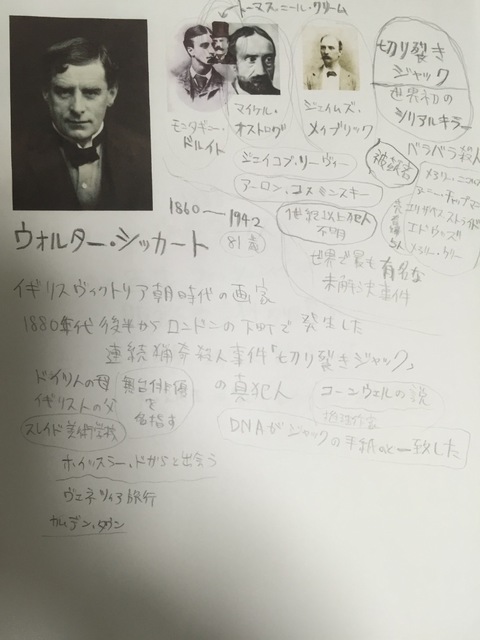 トーマス・ニール・クリーム
モンタギー・
ドルイト
マイケル・
オストログ
ジェイムズ・
メイブリック
切り裂き
ジャック
世界初の
シリアルキラー
バラバラ殺人
ジェイコブ・リーヴィー
アーロン・コスミンスキー
被害者
メアリー・ニコルズ
アニー・チャップマン
エリザベス ストライド
エドウッズ
メアリー・ケリー
売春婦
5人
1世紀以上犯人
不明
世界で最も有名な
未解決事件
1860――1942
81歳
ウォルター・シッカート
イギリスヴィクトリア朝時代の画家
1880年代後半からロンドンの下町で発生した
連続猟奇殺人事件「切り裂きジャック」
の真犯人
ドイツ人の母
イギリス人の父
舞台俳優
を
目指す
コーンウェルの説
推理作家
スレイド美術学校
DNAがジャックの手紙のと一致した
ホイッスラー、ドガらと出会う
ヴェネツィア旅行
カムデン・タウン